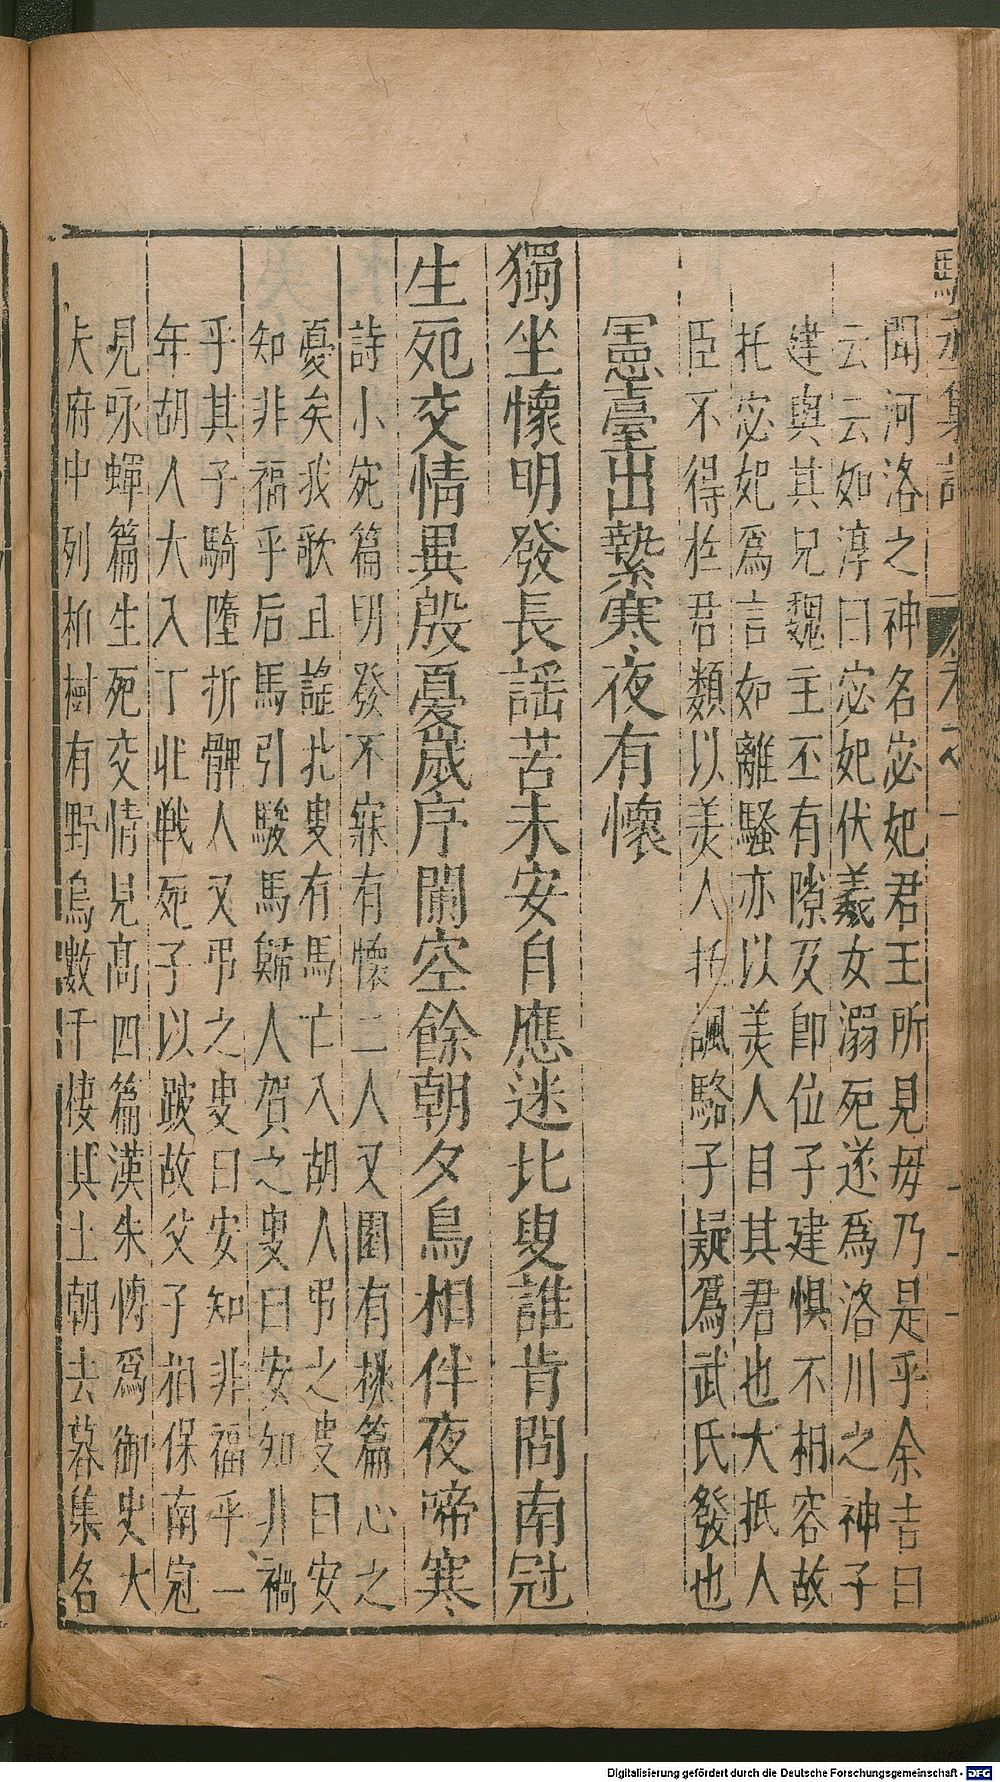 聞河洛之神名宓妃君王所見毋乃是乎余吉曰
云云如淳曰宓妃伏羲女溺死遂爲洛川之神子
建與其兄魏主丕有隙及即位子建懼不相容故
托宓妃爲言如離騷亦以美人目其君也大抵人
臣不得於君類以美人托諷駱子疑爲武氏發也
憲臺出縶寒夜有懷
獨坐懷明發長謡苦未安自應迷比叟誰肯問南冠
生死交情異殷憂歲序闌空餘朝夕鳥相伴夜啼寒
詩小宛篇明發不寐有懷二人又園有桃篇心之
憂矣我歌且謡北叟有馬亡入胡人弔之叟曰安
知非福乎后馬引駿馬歸人賀之叟曰安知非禍
乎其子騎墮折髀人又弔之叟曰安知非福乎一
年胡人大入丁壯戰死子以跛故父子相保南冠
見咏蟬篇生死交情見髙四篇漢朱愽爲御史大
夫府中列栢樹有野烏數千棲其上朝去暮集名
Digitalisierung gefördert durch die Deutsche Forschungsgemeinschaft - DFG